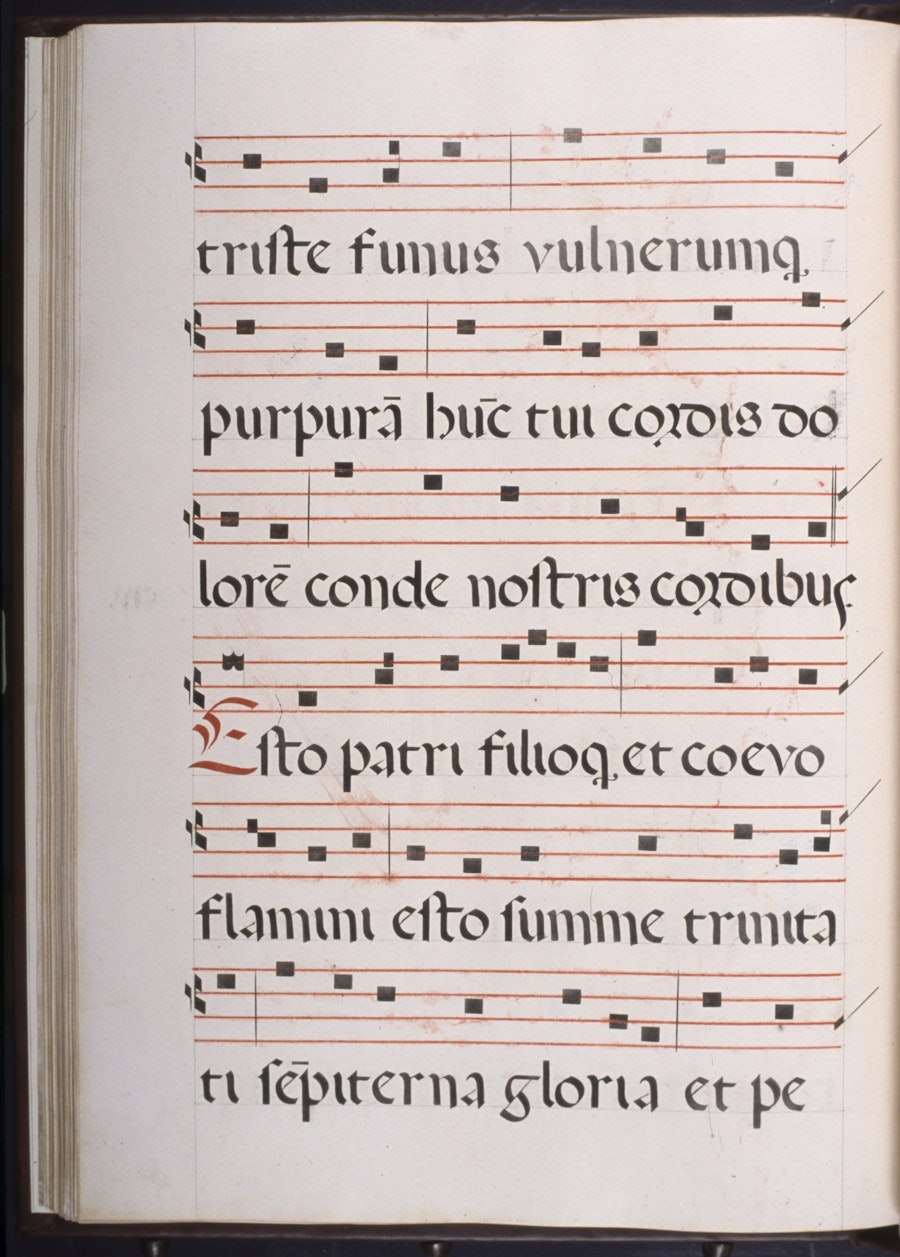 triste funus vulnerumq
purpurā hūc tui cordis do
lorē conde nostris cordibus
Esto patri filioq et coevo
flamini esto summe trinita
ti sēpiterna gloria et pe